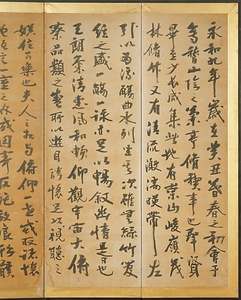 永和九年歲在癸丑暮春之初會于
會稽山陰之蘭亭脩禊事也群賢
畢至少長咸集此地有崇山峻嶺茂
林脩竹又有清流激湍暎帶左
引以為流觴曲水列坐其次雖無絲竹管
絃之盛一觴一詠亦足以暢敘幽情是日也
天朗氣清惠風和暢仰觀宇宙之大俯
察品類之盛所以遊目騁懷足以極視聽之
娛信可樂也夫人之相與俯仰一世或取諸懷
一室之內或因寄所託放浪形骸